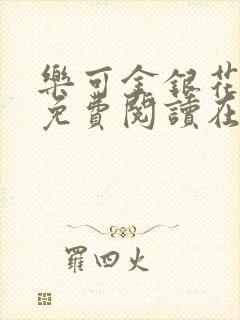 樂可金銀花
免費閱讀在
羅四火